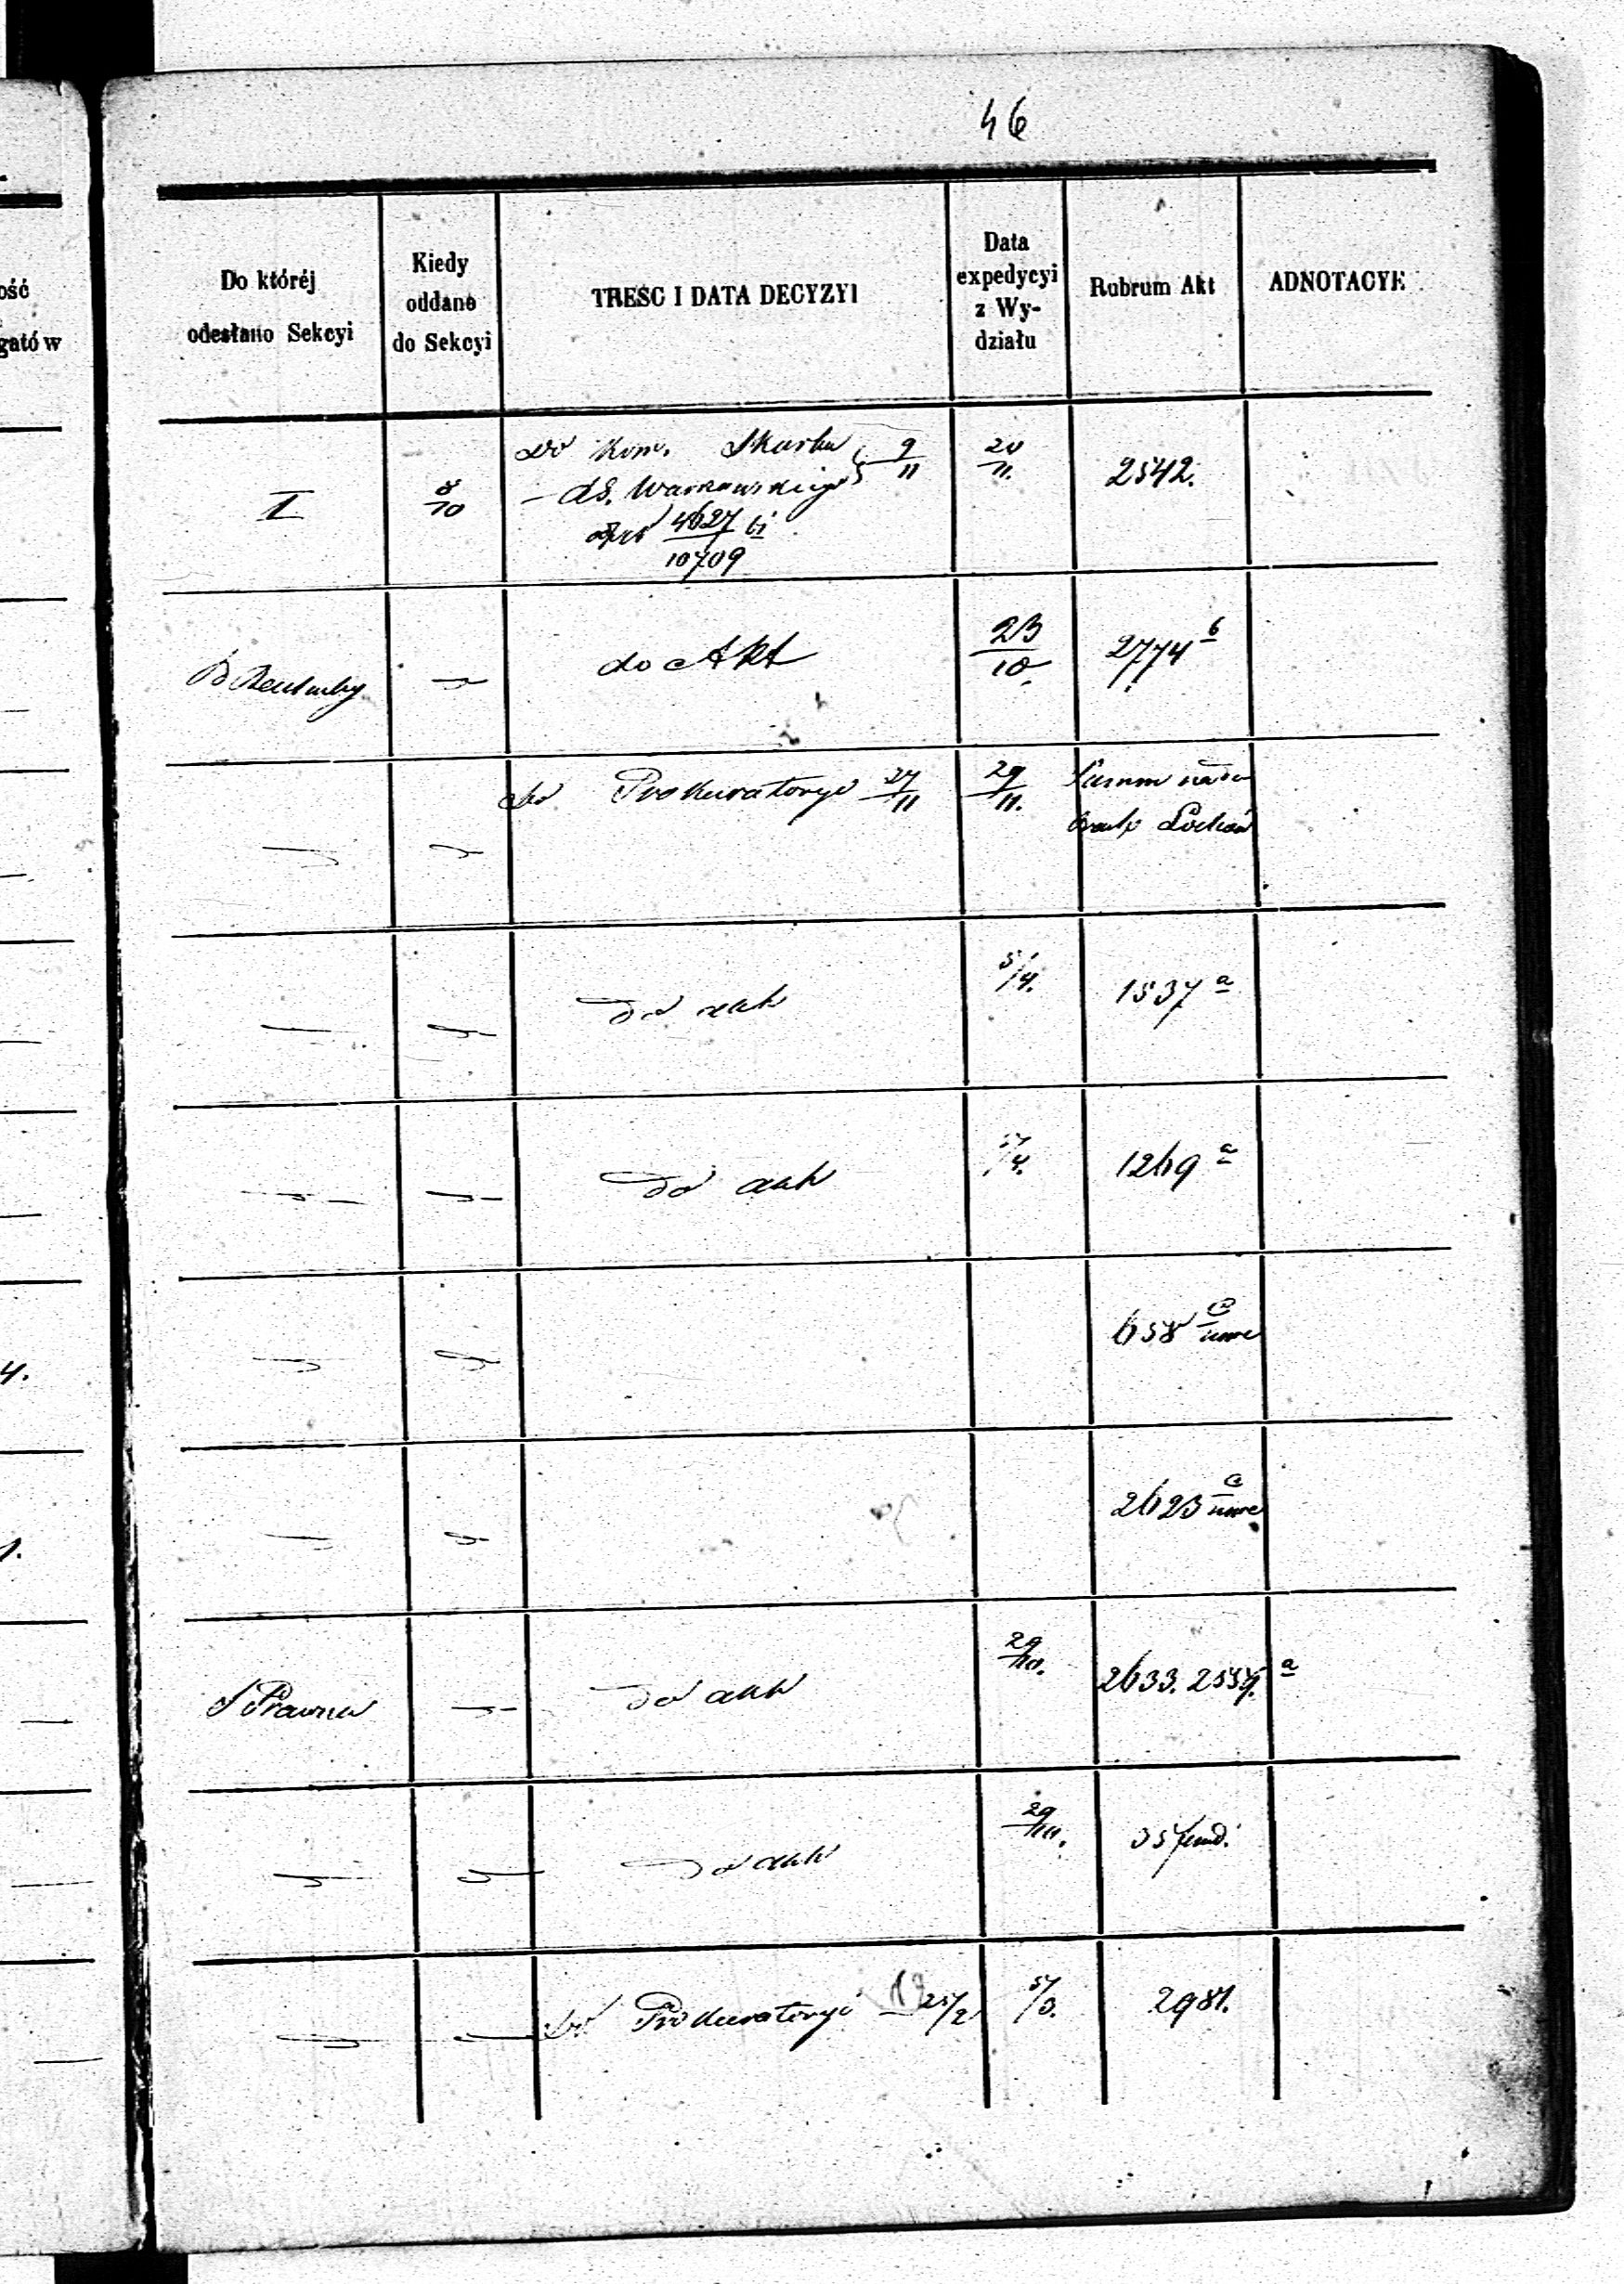 46
ość
gatów
Do któréj
odesłano Sekcyi
Kiedy
oddano
do Sekcyi
TREŚC I DATA DECYZYI
Data
expedycyi
z Wy-
działu
Rubrum Akt
ADNOTACYE
I
8/10
do Kom. Skarbu 9/11
d.S. Warszawskiego
4627
10709
20/11.
2542.
do Akt
23/10.
2774 b
do Prokuratoryi 27/11
29/11.
Summ
do akt
5/4.
1537 a
do akt
5/4.
1269 a
658
2623
S Prawna
do akt
29/10.
2633. 2557. a
do akt
29/10.
357
do Prokuratoryi 25/2
5/3.
2981.
4.
1.